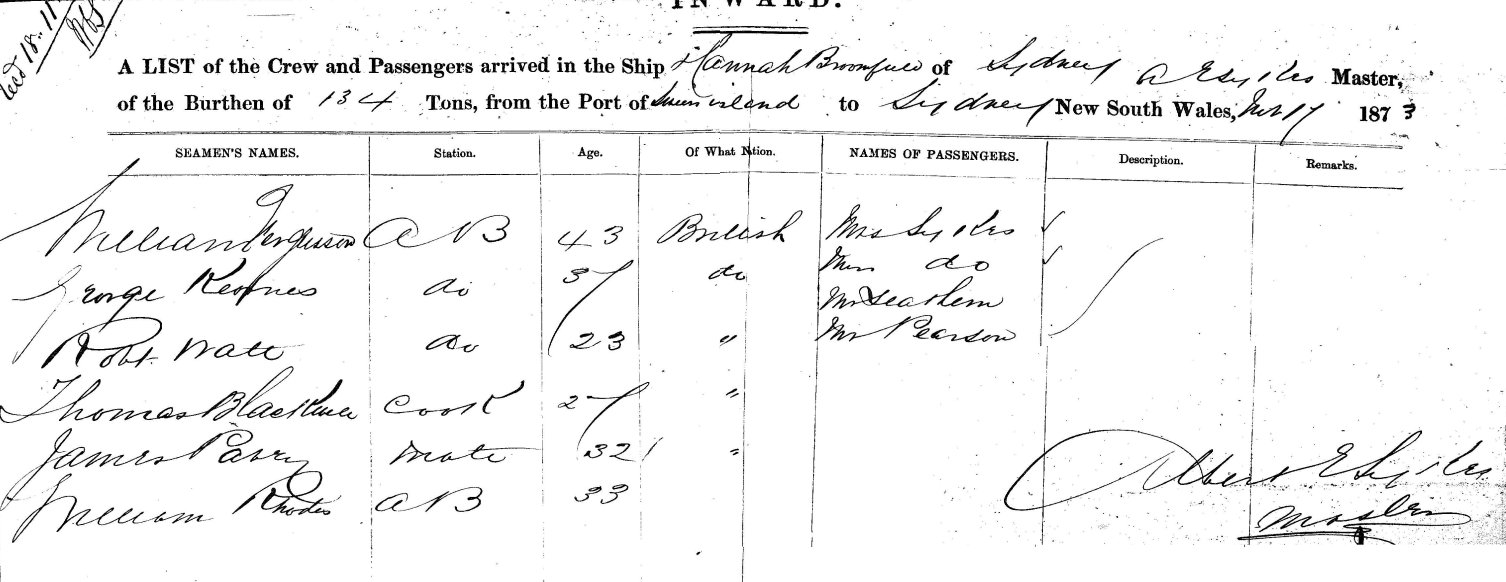 INWARD.
Recd 18.11
A LIST of the Crew and Passengers arrived in the Ship Hannah Broomfield of Sydney A E Sykes Master,
of the Burthen of 134 Tons, from the Port of island to Sydney New South Wales, 17 1873
SEAMEN'S NAMES. Station. Age. Of What Nation. NAMES OF PASSENGERS. Description. Remarks.
William Ferguson A B 43 British Mrs Sykes
George do 37 do do
Robt. Watt do 23 " Mr Pearson
Thomas Cook 27 "
James Parry Mate 32 "
William Rhodes A B 33
Albert E Sykes
Master